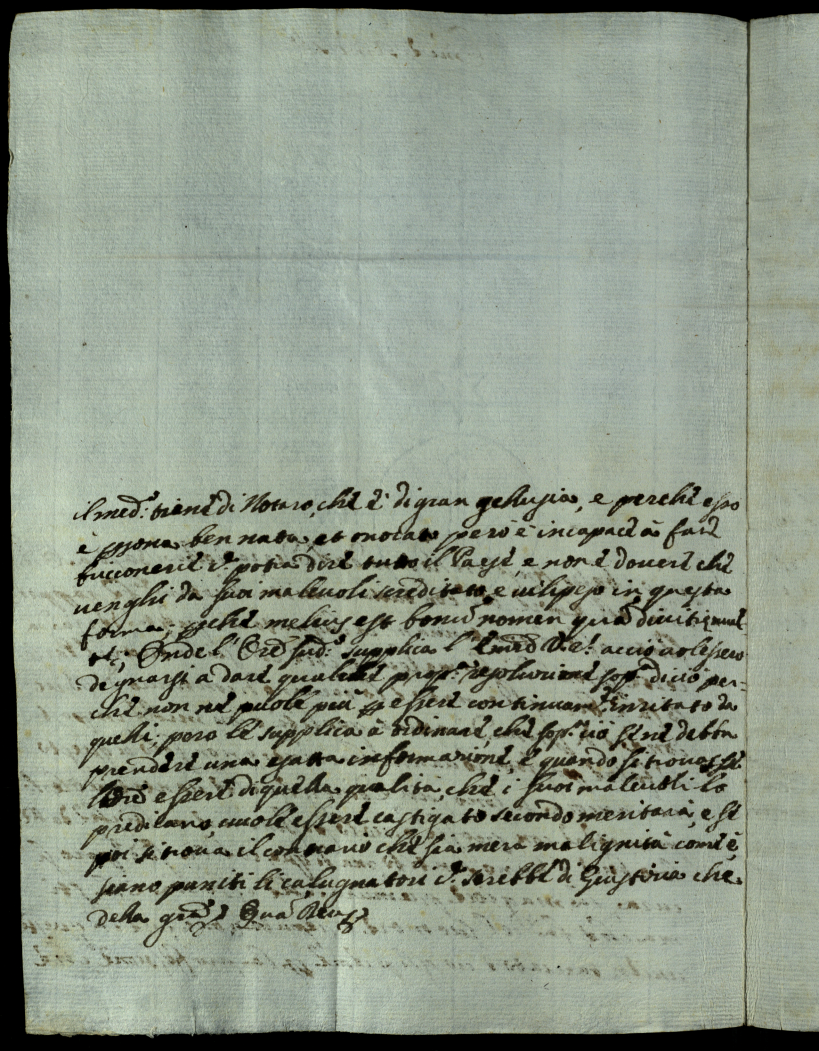 il med.º tiene di Notaro, che è di gran gellusia, e perche esso
è ꝑsona ben nata, et onorata però è incapace à fare
bricconerie cº. potra dire tutto il Paese, e non è dovere che
venghi da suoi malevoli screditato, e vilipeso in questa
forma, ꝑche melius est bonū nomen quā divitie mul
tę, Onde l'Ore sud.º supplica l' Emze VV.e acciò volessero
degnarsi a dare qualche prop.ª resoluzione sopª di ciò per-
che non ne puole più essere continuam.te inritato da
quelli, però le supplica à ordinare che sop.ª ciò se ne debba
prendere una esatta informazione, e quando si trovasse
l'Ore essere di quella qualità, che i suoi malevoli lo
predicano, vuole essere castigato secondo meritarà, e se
poi si trova il contrario che sia mera malignità come è,
siano puniti li calugnatori cº. sarebbe di Giustizia che
della grā Quā Deus